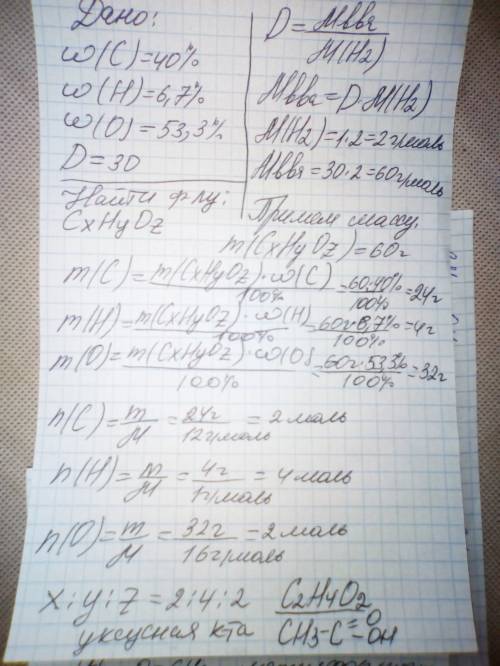 Дано:
w(C)=40%
w(H)=6,7%
w(O)=53,3%
D=30
Найти ф-лу:
CxHyOz
D=Mвва/M(H2)
Mвва=D·M(H2)
M(H2)=1·2=2г/моль
Mвва=30·2=60г/моль
массу,
m(CxHyOz)=60г
m(C)=m(CxHyOz)·w(C)/100%=60·40%/100%=24г
m(H)=m(CxHyOz)·w(H)/100%=60г·6,7%/100%=4г
m(O)=m(CxHyOz)·w(O)/100%=60г·53,3%/100%=32г
n(C)=m/M=24г/12г/моль=2моль
n(H)=m/M=4г/1г/моль=4моль
n(O)=m/M=32г/16г/моль=2моль
x:y:z=2:4:2
C2H4O2
уксусная к-та
CH3-C=O-OH